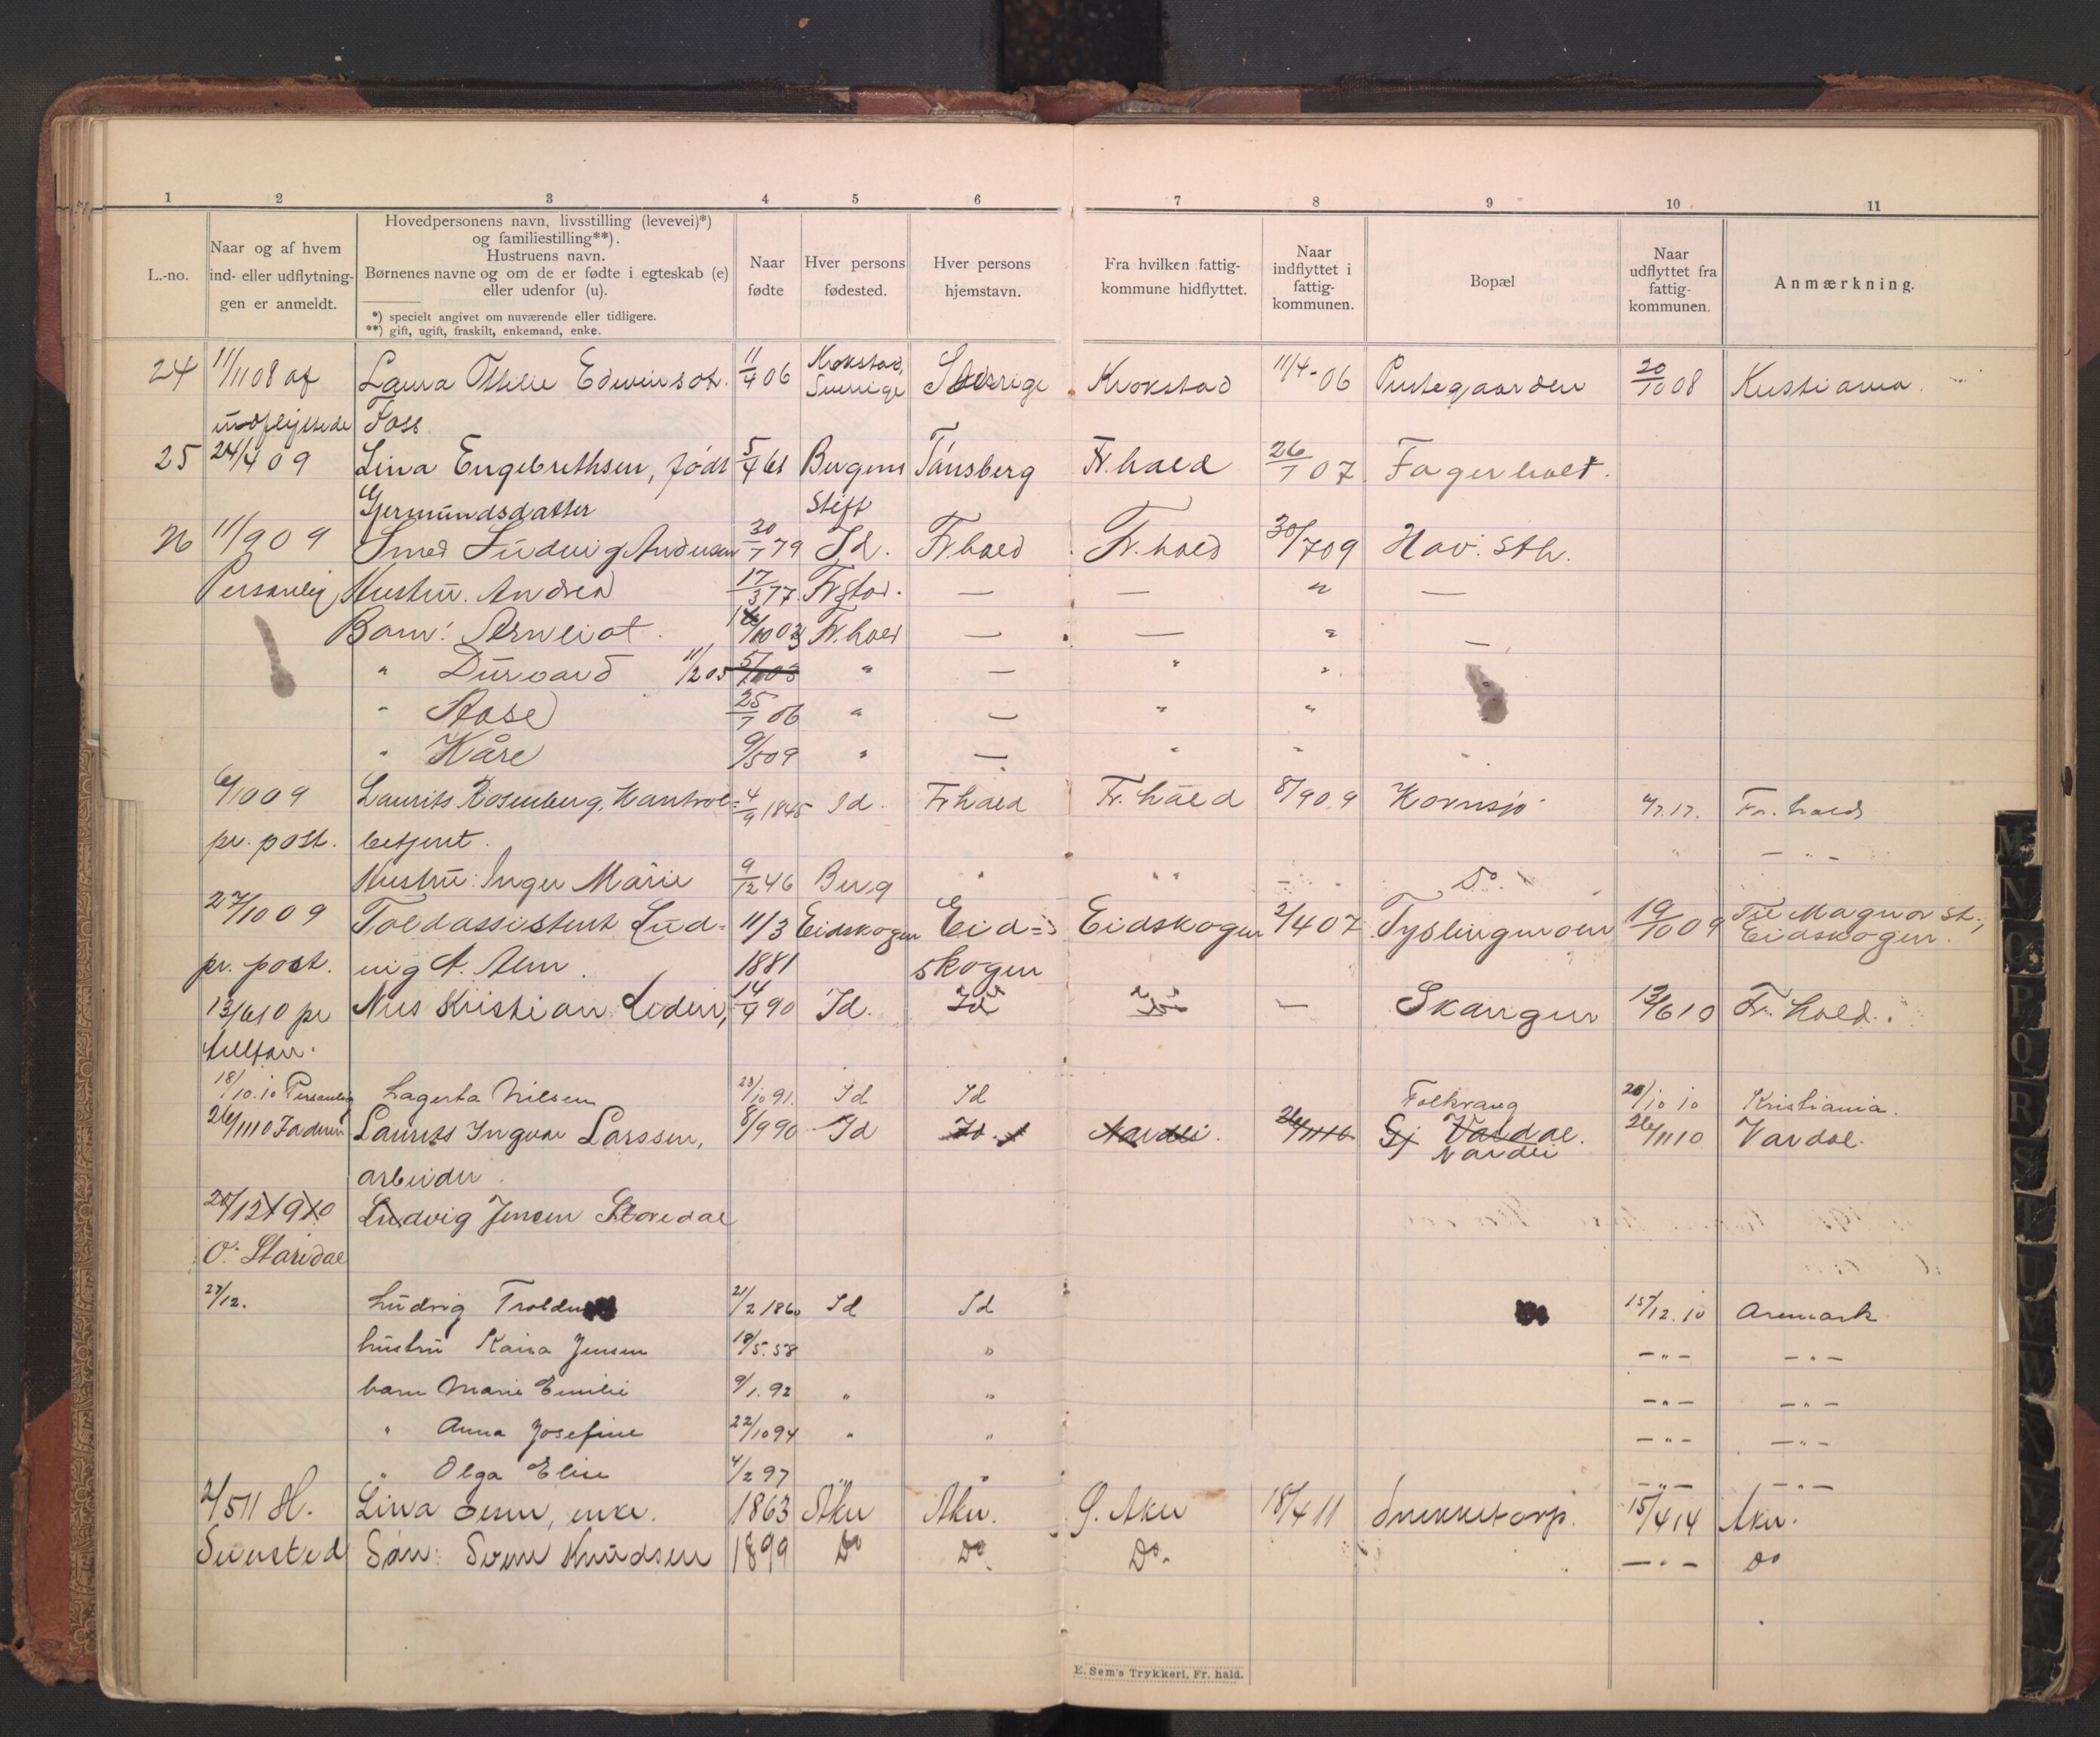 1 2 3 4 5 6 7 8 9 10 11
L.-no.
Naar og af hvem
ind- eller udflytnin-
gen er anmeldt.
Hovedpersonens navn, livsstilling (levevei)*)
og familiestilling**).
Hustruens navn.
Børnenes navne og om de er fødte i egteskab (e)
eller udenfor (u).
*) specielt angivet om nuværende eller tidligere.
**) gift, ugift, fraskilt, enkemand, enke.
Naar
fødte
Hver persons
fødested.
Hver persons
hjemstavn.
Fra hvilken fattig-
kommune hidflyttet.
Naar
indflyttet i
fattig-
kommunen.
Bopæl
Naar
udflyttet fra
fattig-
kommunen.
Anmærkning.
24 11/11 08 af Laura Otilie Edwinsdt. 11/4 06 Krokstad, Sverrige Sverrige Krokstad 11/4-06 Prestegaarden 20/10 08 Kristiania.
Foss.
25 24/4 09 Lina Engebrethsen, født 5/4 61 Bergens Tønsberg Fr.hald 26/1 07 Fagerholt.
Gjermundsdatter Stift
26 11/9 09 Smed Ludvig Andersen 30/7 79 Id. Fr.hald Fr.hald 30/7 09 Hov. Sth.
Personlig Hustru. Andrea 17/3 77 Fr.stad. — — " —
Barn: Arnliot. /10 03 Fr.hald — — " —
" Durvard 11/2 05 " — " "
" Aase 25/7 06 " — " "
" Kåre 9/5 09 " — " "
6/10 09 Laurits Rosenberg, Kontrol= 4/9 1845 Id. Fr.hald Fr.hald 8/9 09 Kornsjø 17. Fr.hald
pr. post. betjent. " — " —
Hustru: Inger Marie 9/12 46 Berg " " " Do.
27/10 09 Toldassistent Lud= 11/3 Eidskogen Eid= Eidskogen 2/4 07 Tyslingmoen 19/10 09 Til Magnor St.,
Eidskogen.
pr. post. vig A. Alm. 1881 skogen
13/6 10 pr Nils Kristian Lodin, 14/4 90 Id. Id Id — Skangen 13/6 10 Fr.hald.
telefon.
18/10.10 Personlig Lagerta Nilsen 23/10 91. Id Id Folkvang 20/10 10 Kristiania.
26/11 10 Faderen Laurits Ingvar Larssen, 8/9 90 Id Id. Nordli. 26/11 10 Vardal. 26/11 10 Vardal.
Nordli
arbeider.
28/12 1910 Ludvig Jensen Storedal
O. Storedal
27/12. Ludvig 21/2 1860 Id Id 15/12.10 Aremark
hustru Kaisa Jensen 18/5.58 " — " — — " —
barn Marie Emilie 9/1.92 " " — " — — " —
" Anna Josefine 22/10 94 " " — " — — " —
" Olga Elise 4/2 97 " " — " — — " —
2/5 11 H. Lina Olsen, enke. 1863 Aker Aker. Ø. Aker 18/4 11 Snekketorp. 15/4 14 Aker.
Svensted Søn: Svenn Knudsen 1899 Do Do. Do. — " — Do
E. Sem's Trykkeri, Fr. hald.
M N O P Q R S T U V W X Y Z